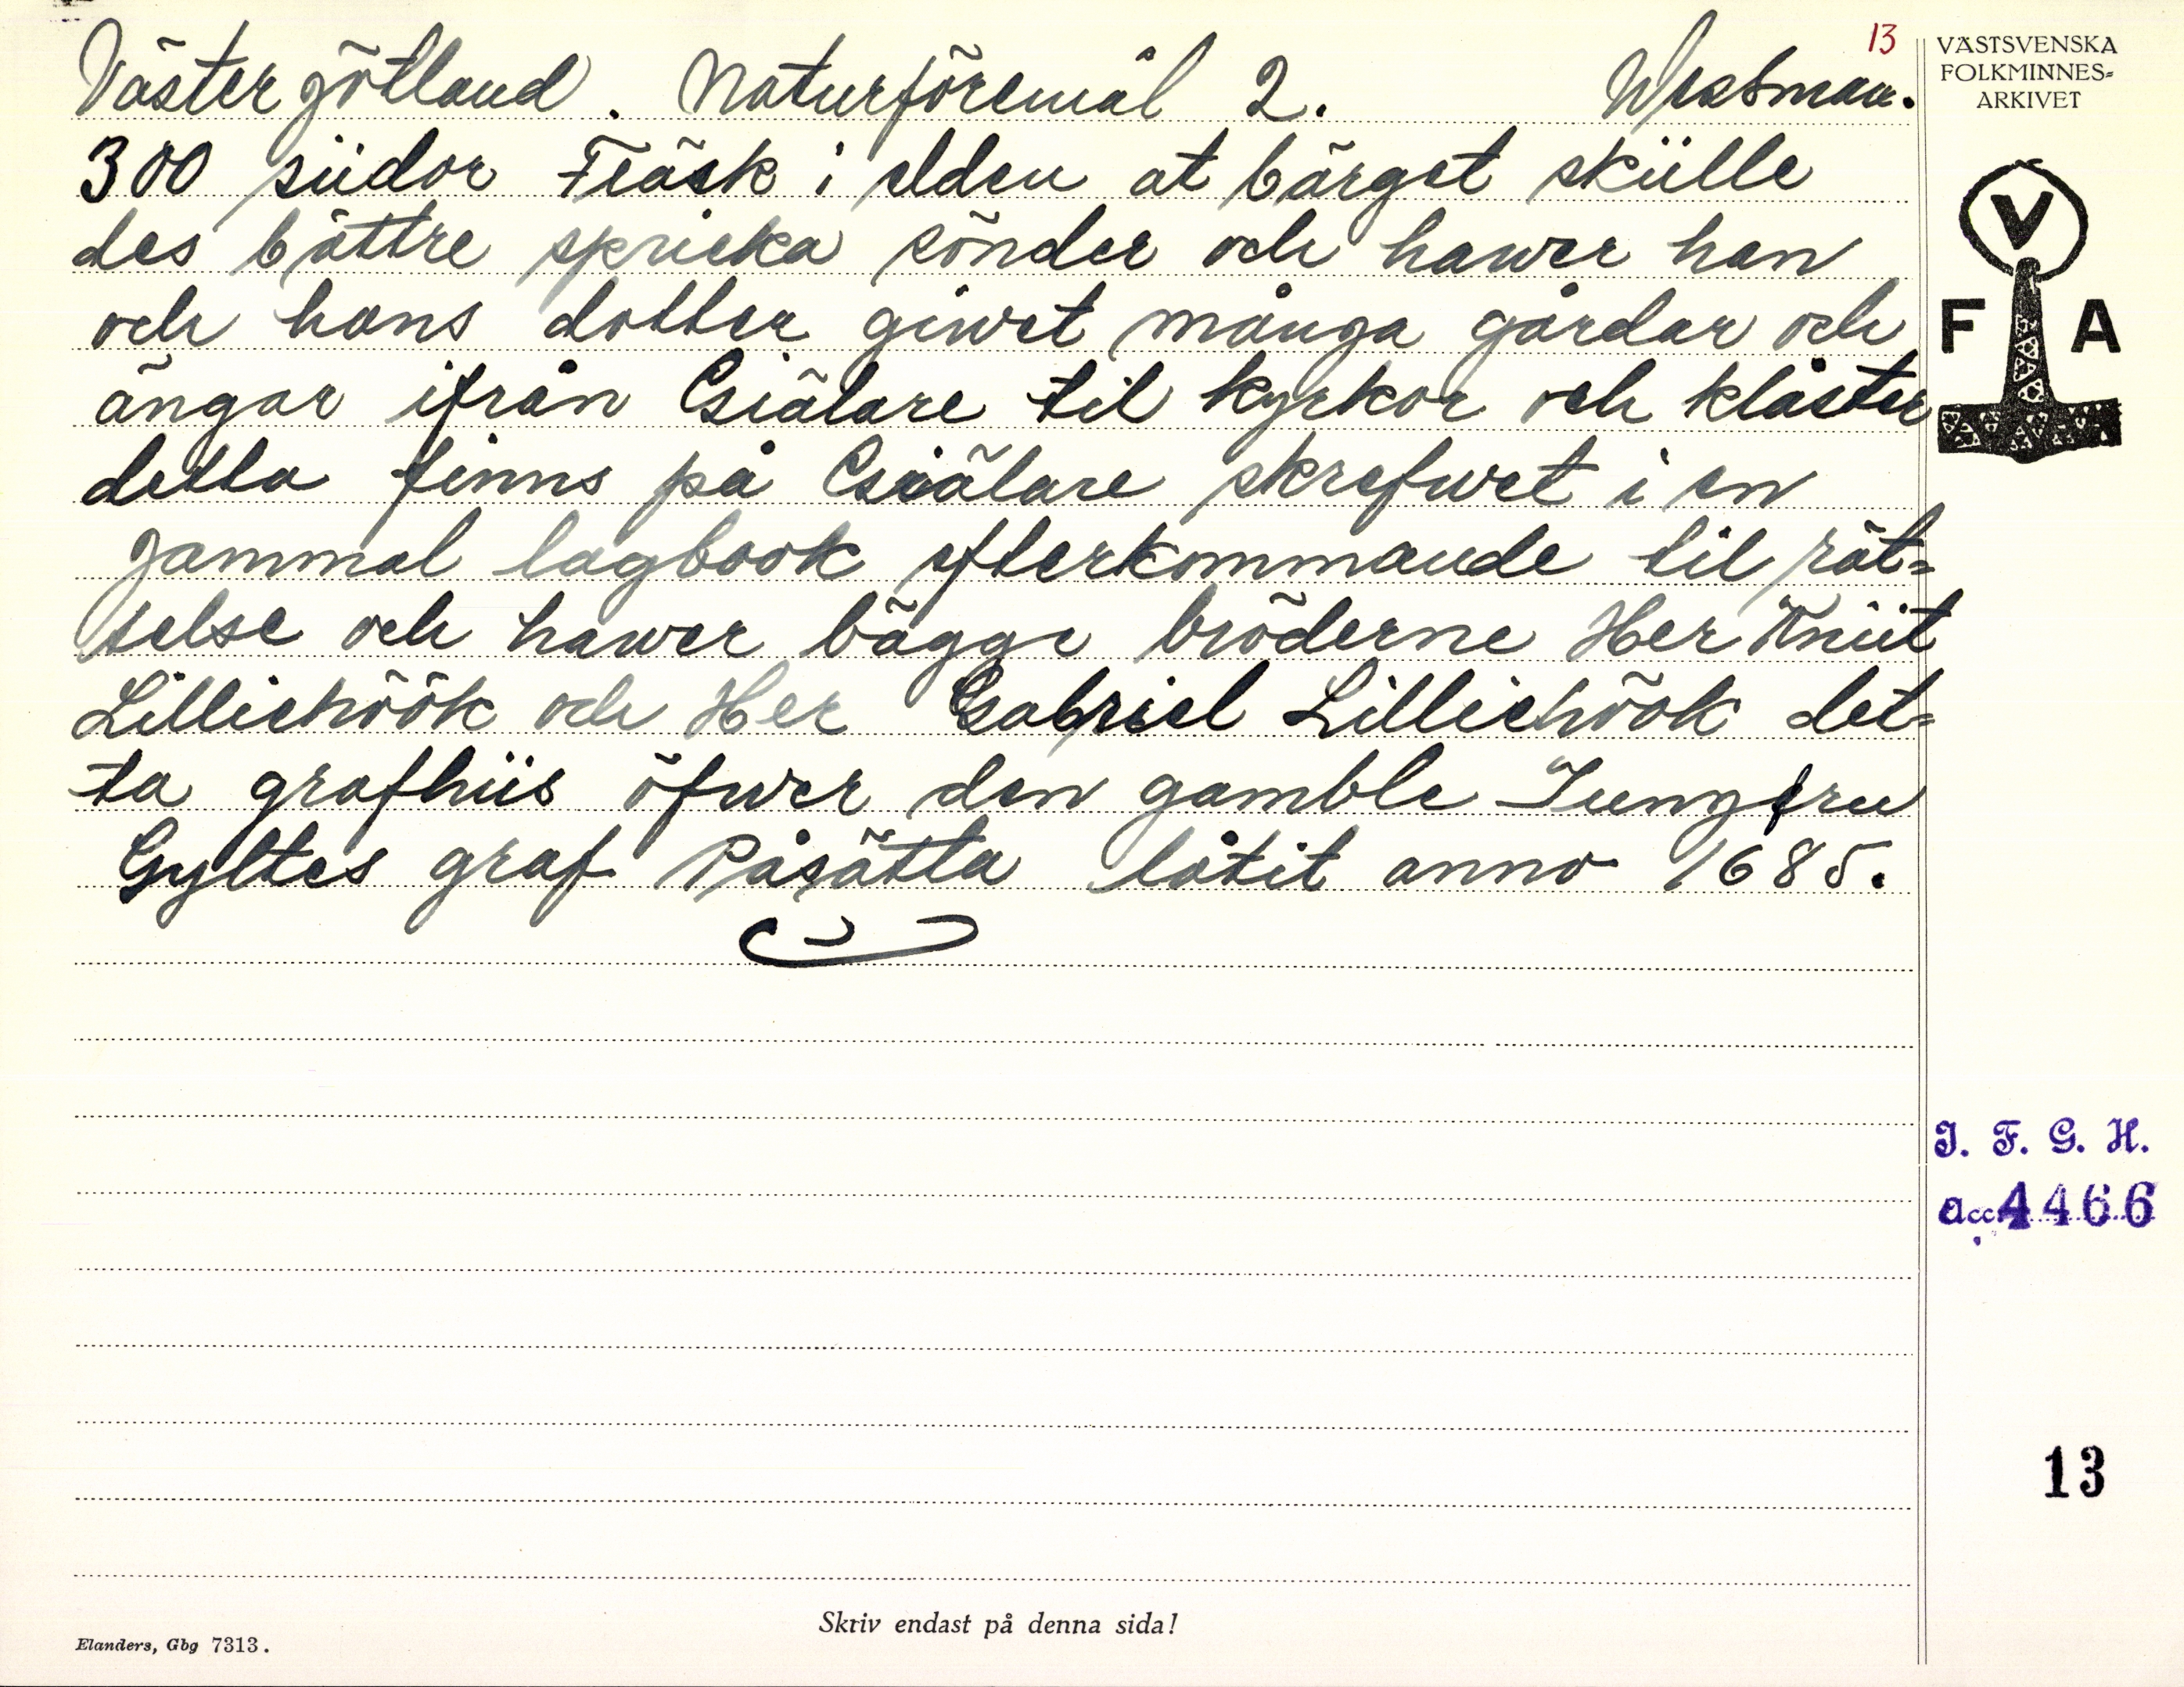 13
Västergötland. Naturföremål 2. Westman.
300 siidor Fläsk i elden at bärget skülle
des bättre spricka sönder och hawer han
och hans dotter giwet många gårdar och
ängar ifrån Giälare til kyrkor och klåster
detta finns på Giälare skrefwet i en
gammal lagbook efterkommande til rät=
telse och hawer bägge bröderne Her Knüt
Lilliehöök och Her Gabriel Lilliehöök det=
ta grafhüs öfwer den gamble Jungfru
Gyltes graf Påsätta låtit anno 1685.
VÄSTSVENSKA
FOLKMINNES=
ARKIVET
V
F A
I. F. G. H.
acc. 4466
13
Skriv endast på denna sida!
Elanders, Gbg 7313.